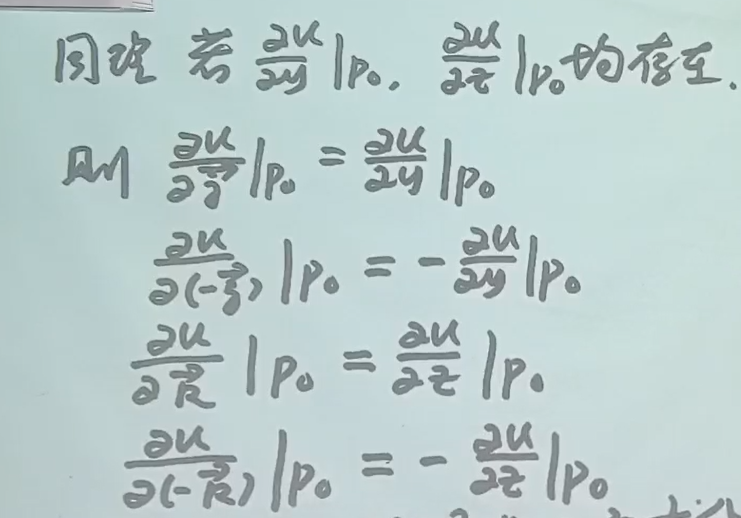 同理 若 ∂u/∂y|P₀, ∂u/∂z|P₀均存在.
则 ∂u/∂j⃗|P₀ = ∂u/∂y|P₀
∂u/∂(-j⃗)|P₀ = -∂u/∂y|P₀
∂u/∂k⃗|P₀ = ∂u/∂z|P₀
∂u/∂(-k⃗)|P₀ = -∂u/∂z|P₀